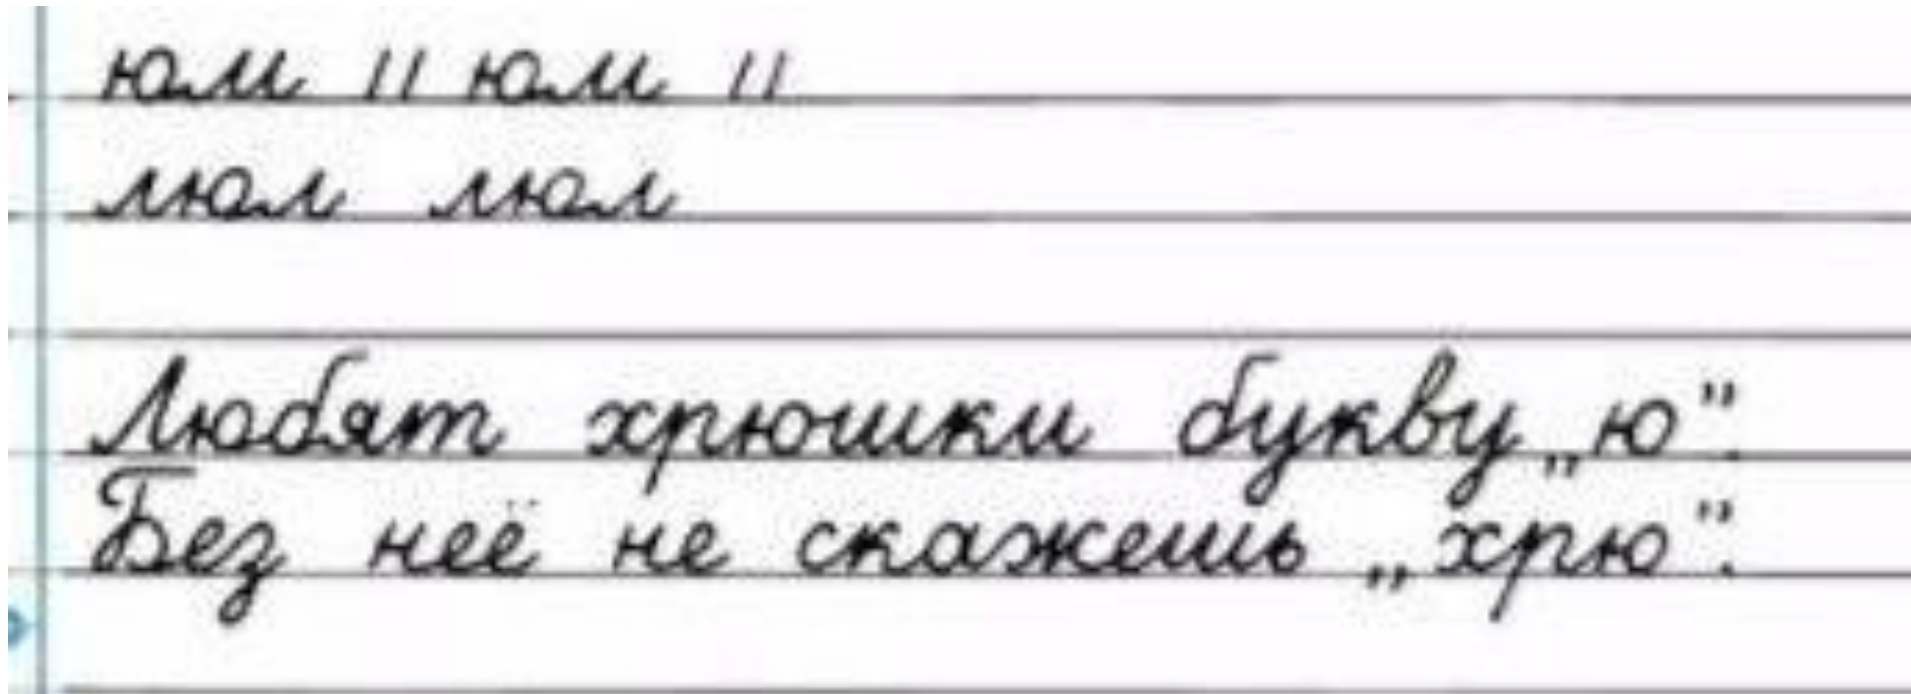 юм // юм //
люл люл
Любят хрюшки букву „ю".
Без неё не скажешь „хрю".